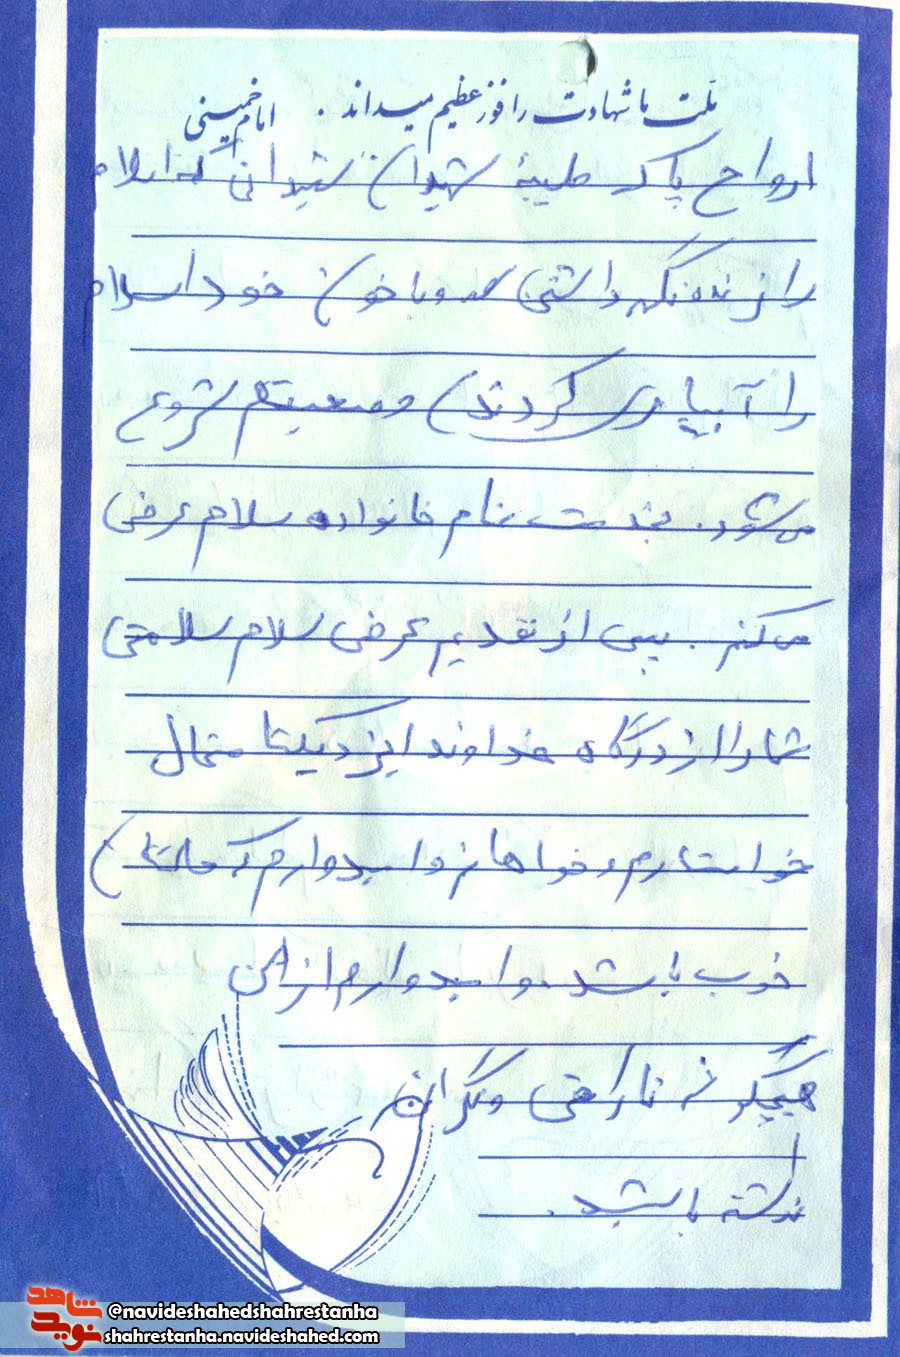 ملت ما شهادت را فوز عظیم میداند. امام خمینی
ارواح پاک طیبهٔ شهیدان شهیدانی که اسلام
را زنده نگه داشتن و با خون خود اسلام
را آبیاری کردند شروع
می‌شود. خدمت تمام خانواده سلام عرض
می‌کنم. پس از تقدیم عرض سلام سلامتی
شما را از درگاه خداوند ایزد یکتا متعال
خواستارم و خواهانم و امیدوارم که حالتان
خوب باشد. و امیدوارم از من
هیچگونه ناراحتی و نگران
نداشته باشید.
شاهد
نوید
@navideshahedshahrestanha
shahrestanha.navideshahed.com